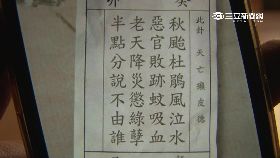 三立新聞網
癸
卯
此卦 天亡 癩皮德
秋颱杜鵑風泣水
惡官敗跡蚊吸血
老天降災懲綠孽
半點分說不由誰